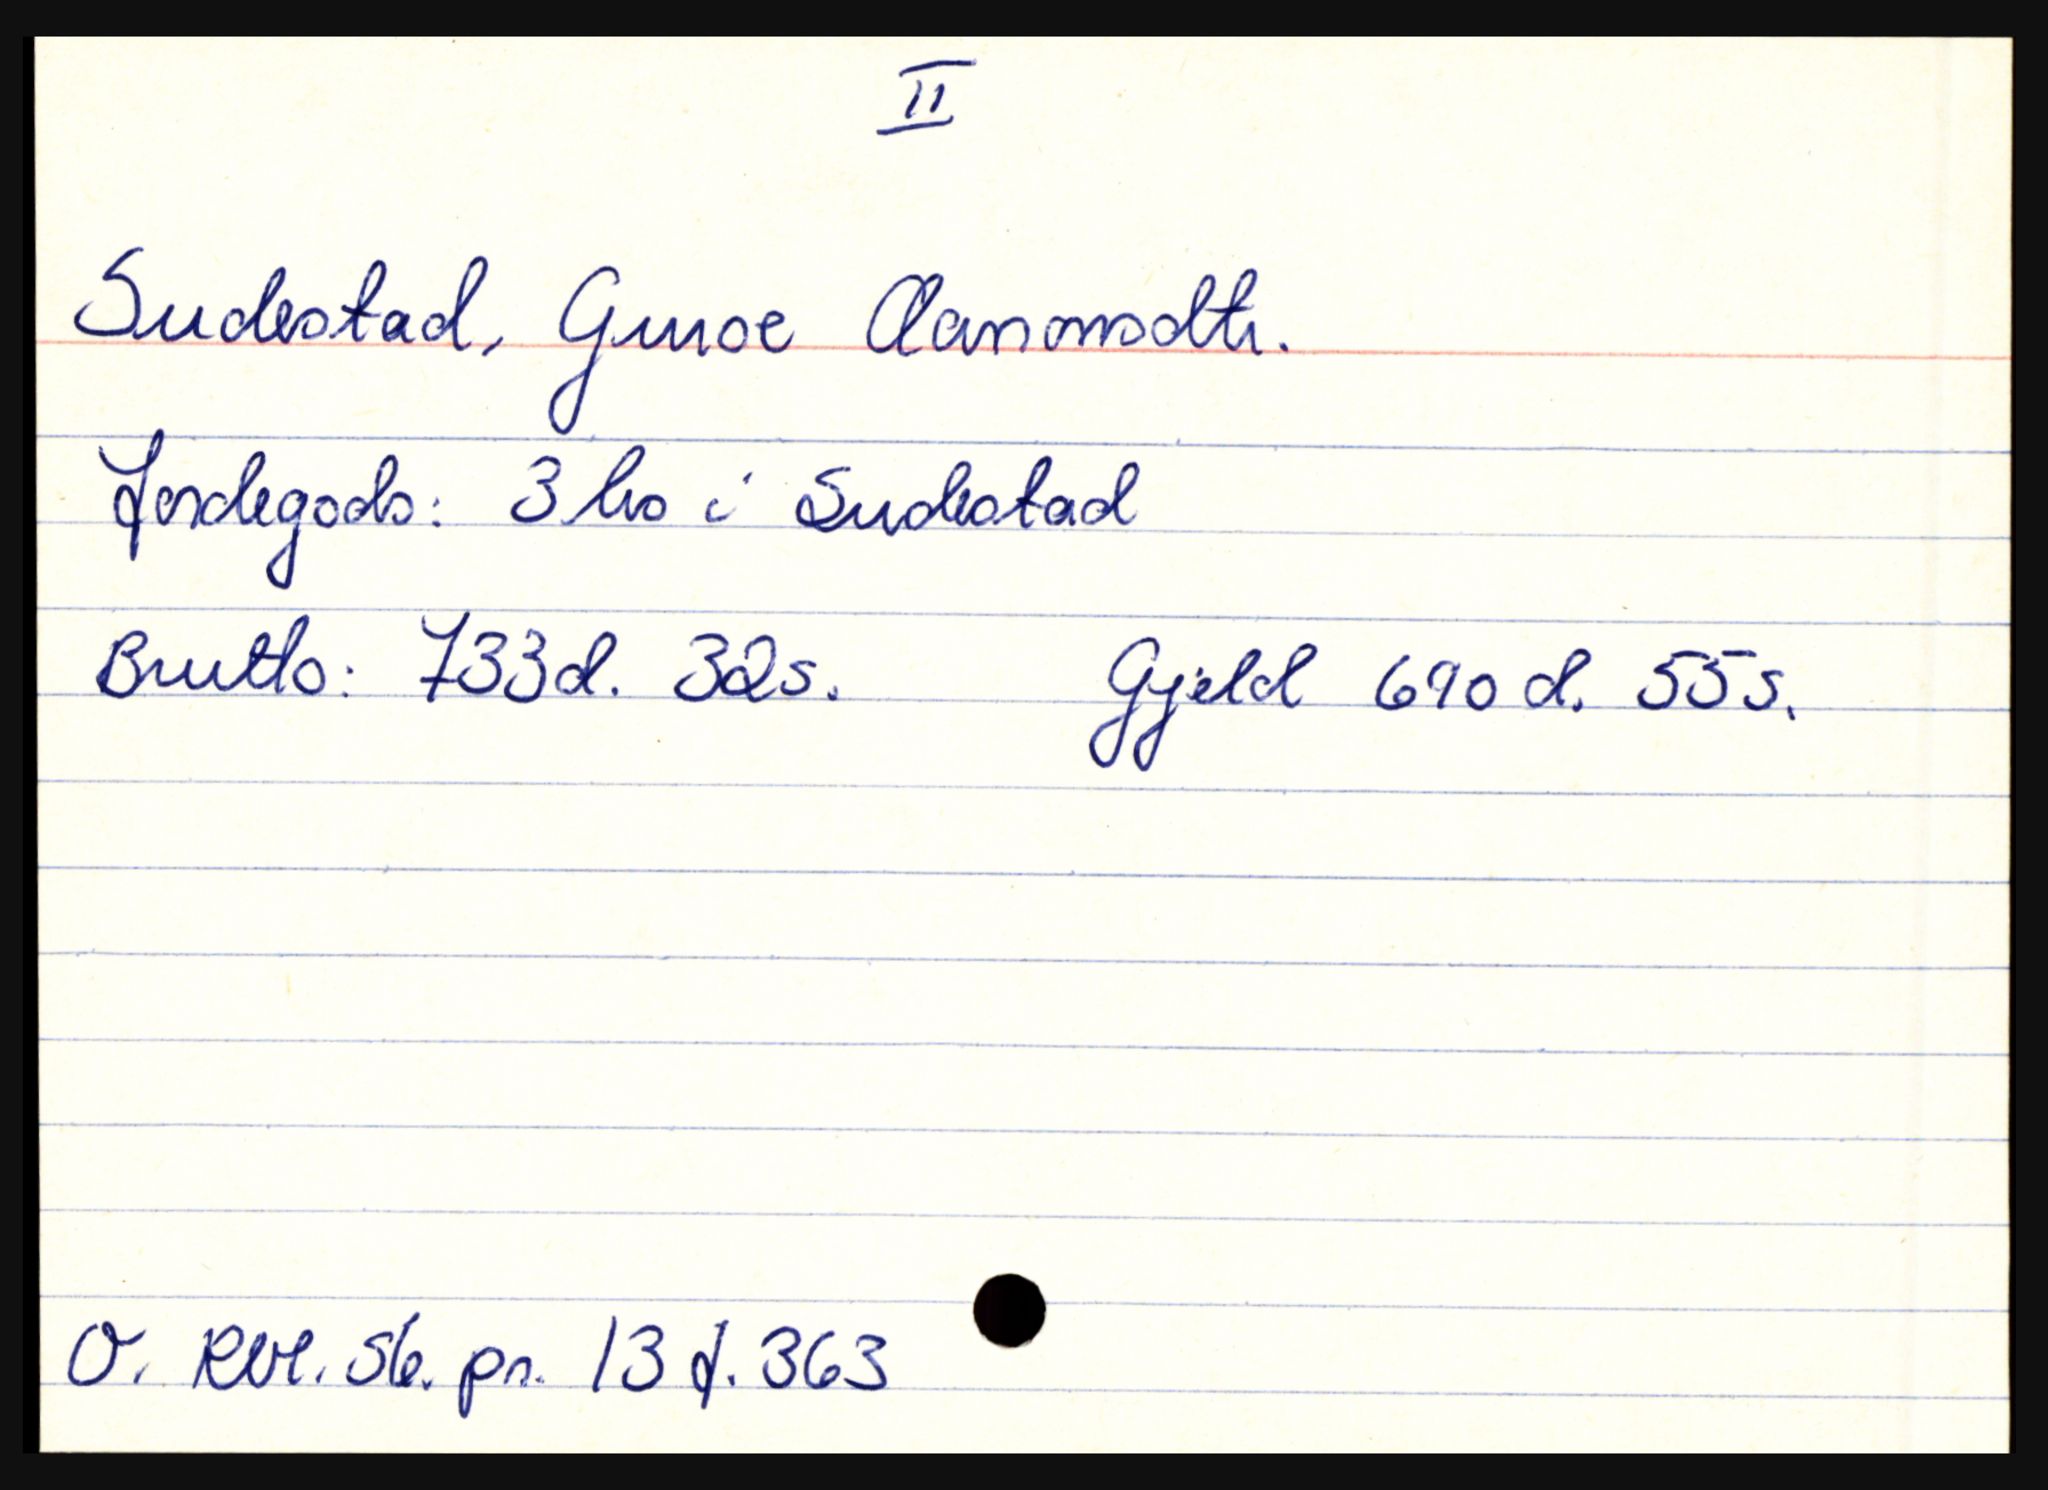 II
Sudestad, Guroe Aanonsdtr.
Jordegods: 3 hs i Sudestad
Brutto: 733d. 32s. Gjeld 690 d. 55s.
V. Rbl. Sk. pr. 13 f. 363